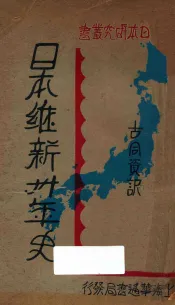 日本研究叢書
日本維新卅年史
古同資訳
上海華通書局發行